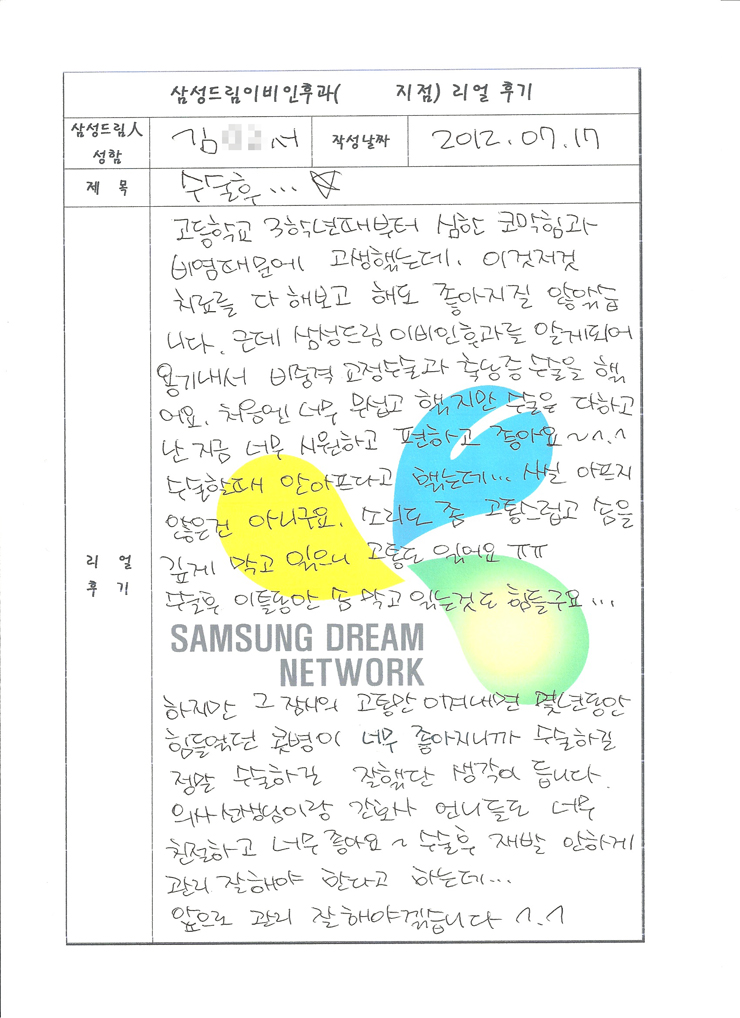 삼성드림이비인후과( 지점) 리얼 후기
삼성드림人 성함
김 서
작성날짜
2012.07.17
제 목
수술후...
리 얼
후 기
고등학교 3학년때부터 심한 코막힘과
비염때문에 고생했는데. 이것저것
치료를 다 해보고 해도 좋아지질 않았습
니다. 근데 삼성드림 이비인후과를 알게되어
용기내서 비중격 교정수술과 축농증 수술을 했
어요. 처음엔 너무 무섭고 했지만 수술을 다하고
난 지금 너무 시원하고 편하고 좋아요~^.^
수술할때 안아프다고 했는데... 사실 아프지
않은건 아니구요. 소리도 좀 고통스럽고 솜을
깊게 막고 있으니 고통도 있어요 ㅠㅠ
수술후 이틀동안 솜 막고 있는것도 힘들구요...
SAMSUNG DREAM
NETWORK
하지만 그 잠시의 고통만 이겨내면 몇년동안
힘들었던 콧병이 너무 좋아지니까 수술하길
정말 수술하길 잘했단 생각이 듭니다.
의사선생님이랑 간호사 언니들도 너무
친절하고 너무 좋아요~ 수술후 재발 안하게
관리 잘해야 한다고 하는데...
앞으로 관리 잘해야겠습니다 ^.^